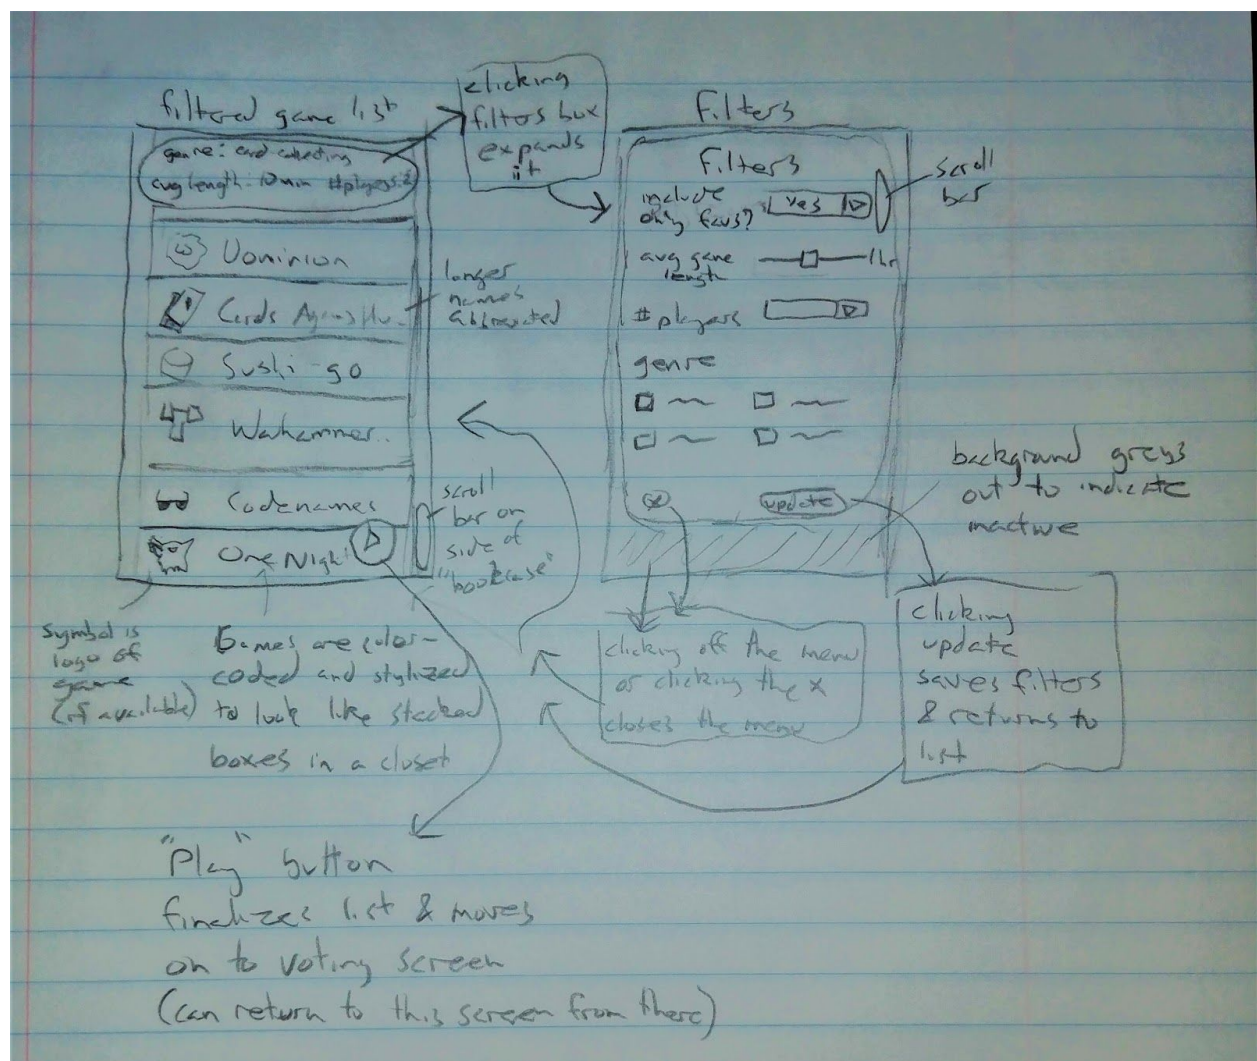 filtered game list
genre: card collecting
avg length: 10min #players: 2
Dominion
Cards Against Hu...
Sushi-go
Wahammer..
Codenames
One Night
clicking
filters box
expands
it
longer
names
abbreviated
scroll
bar on
side of
"bookcase"
Filters
Filters
include
only favs?
yes
avg game
length
1hr
# players
genre
x
update
scroll
bar
background greys
out to indicate
inactive
clicking off the menu
or clicking the x
closes the menu
clicking
update
saves filters
& returns to
list
Symbol is
logo of
game
(if available)
Games are color-
coded and stylized
to look like stacked
boxes in a closet
"Play" button
finalizes list & moves
on to voting screen
(can return to this screen from there)